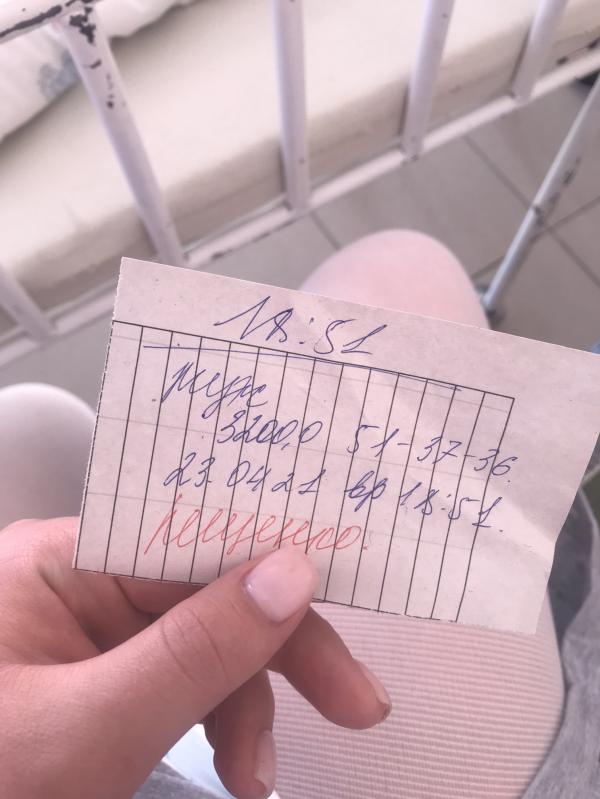 18:51
муж
3200,0 51-37-36.
23.04 21 вр 18:51.
Ищенко.